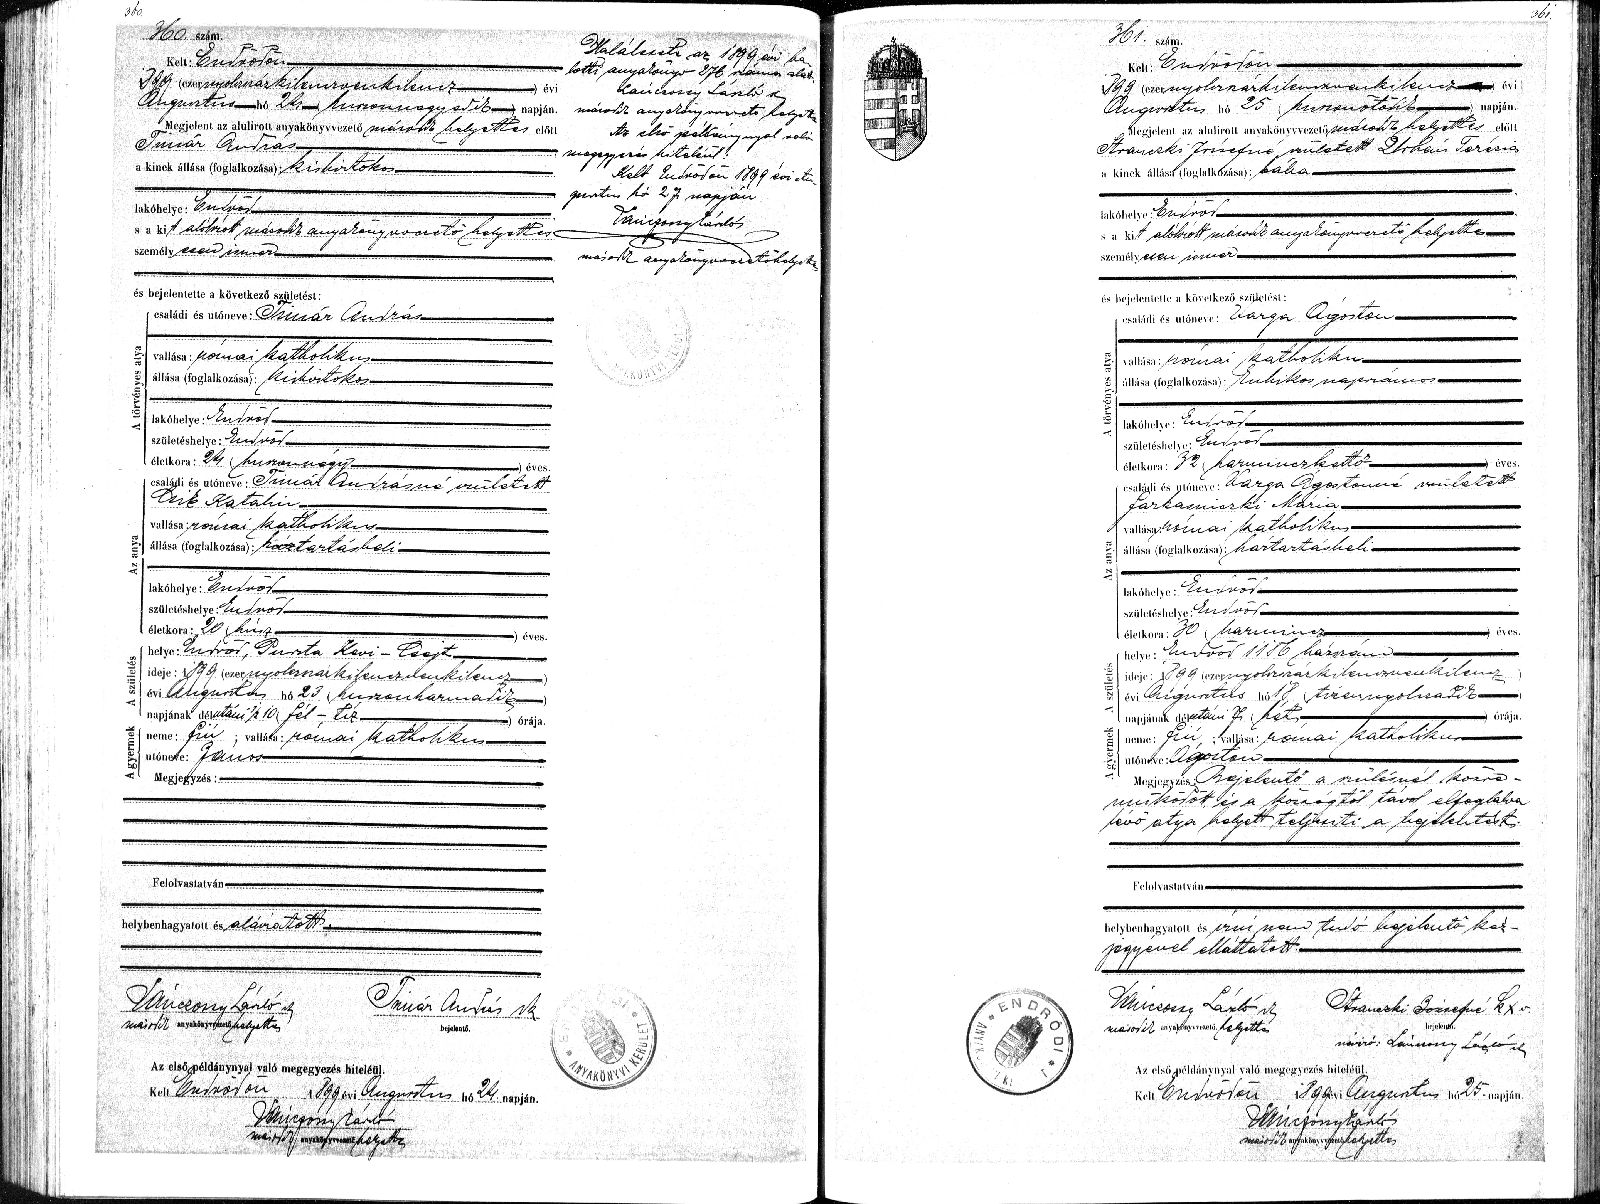 360.
360. szám.
Kelt: Endrődön
1899 (ezernyolczszázkilenczvenkilencz) évi
Augusztus hó 24 (huszonnegyedik) napján.
Megjelent az alulirott anyakönyvvezető második helyettes előtt
Timár András
a kinek állása (foglalkozása): kisbirtokos
lakóhelye: Endrőd
s a kit alólirott második anyakönyvvezető helyettes
személyesen ismer
és bejelentette a következő születést:
A törvényes atya
családi és utóneve: Timár András
vallása: római katholikus
állása (foglalkozása): kisbirtokos
lakóhelye: Endrőd
születéshelye: Endrőd
életkora: 24 (huszonnégy) éves.
Az anya
családi és utóneve: Timár Andrásné született
Csik Katalin
vallása: római katholikus
állása (foglalkozása): háztartásbeli
lakóhelye: Endrőd
születéshelye: Endrőd
életkora: 20 (húsz) éves.
A születés
helye: Endrőd, Puszta Kévi-Csejt
ideje: 1899 (ezernyolczszázkilenczvenkilencz)
évi Augusztus hó 23 (huszonharmadik)
napjának délutáni 1/2 10 (fél-tiz) órája.
A gyermek
neme: fiú; vallása: római katholikus
utóneve: János
Megjegyzés:
Felolvastatván
helybenhagyatott és aláiratott.
Vánczony László sk
második anyakönyvvezető helyettes
Timár András sk
bejelentő.
Az első példánynyal való megegyezés hiteléül.
Kelt Endrődön 1899 évi Augusztus hó 24. napján.
Vánczony László
második anyakönyvvezető helyettes
Halálesete az 1899 évi ha-
lotti anyakönyv 276 száma alatt.
Vánczony László sk
második anyakönyvvezető helyettes
Az első példánynyal való
megegyezés hiteléül:
Kelt Endrődön 1899 évi Au-
gusztus hó 27 napján
Vánczony László
második anyakönyvvezető helyettes
ANYAKÖNYVI KERÜLET
361.
361. szám.
Kelt: Endrődön
1899 (ezernyolczszázkilenczvenkilencz) évi
Augusztus hó 25 (huszonötödik) napján.
Megjelent az alulirott anyakönyvvezető második helyettes előtt
Hranczki Józsefné született Urbán Terézia
a kinek állása (foglalkozása): bába
lakóhelye: Endrőd
s a kit alólirott második anyakönyvvezető helyettes
személyesen ismer
és bejelentette a következő születést:
A törvényes atya
családi és utóneve: Varga Ágoston
vallása: római katholikus
állása (foglalkozása): kubikos napszámos
lakóhelye: Endrőd
születéshelye: Endrőd
életkora: 32 (harminczkettő) éves.
Az anya
családi és utóneve: Varga Ágostonné született
Farkasinszki Mária
vallása: római katholikus
állása (foglalkozása): háztartásbeli
lakóhelye: Endrőd
születéshelye: Endrőd
életkora: 30 (harmincz) éves.
A születés
helye: Endrőd 1186 házszám
ideje: 1899 (ezernyolczszázkilenczvenkilencz)
évi Augusztus hó 18 (tizennyolczadik)
napjának délutáni 7 (hét) órája.
A gyermek
neme: fiú; vallása: római katholikus
utóneve: Ágoston
Megjegyzés: Bejelentő a szülésnél közre-
működött és a községtől távol elfoglalva
lévő atya helyett teljesiti a bejelentést.
Felolvastatván
helybenhagyatott és irni nem tudó bejelentő kéz-
jegyével elláttatott
Vánczony László sk
második anyakönyvvezető helyettes
Hranczki Józsefné k x v.
bejelentő.
névíró: Vánczony László sk
ENDRŐDI
Az első példánynyal való megegyezés hiteléül.
Kelt Endrődön 1899 évi Augusztus hó 25. napján.
Vánczony László
második anyakönyvvezető helyettes